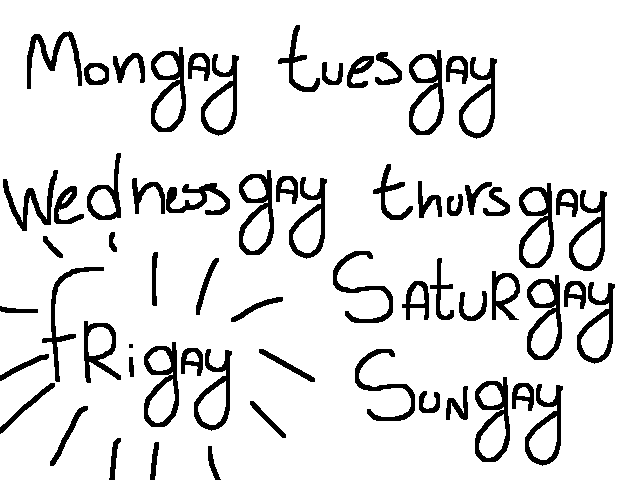 Mongay tuesgay
Wednessgay thursgay
fRigay SatuRgay
Sungay